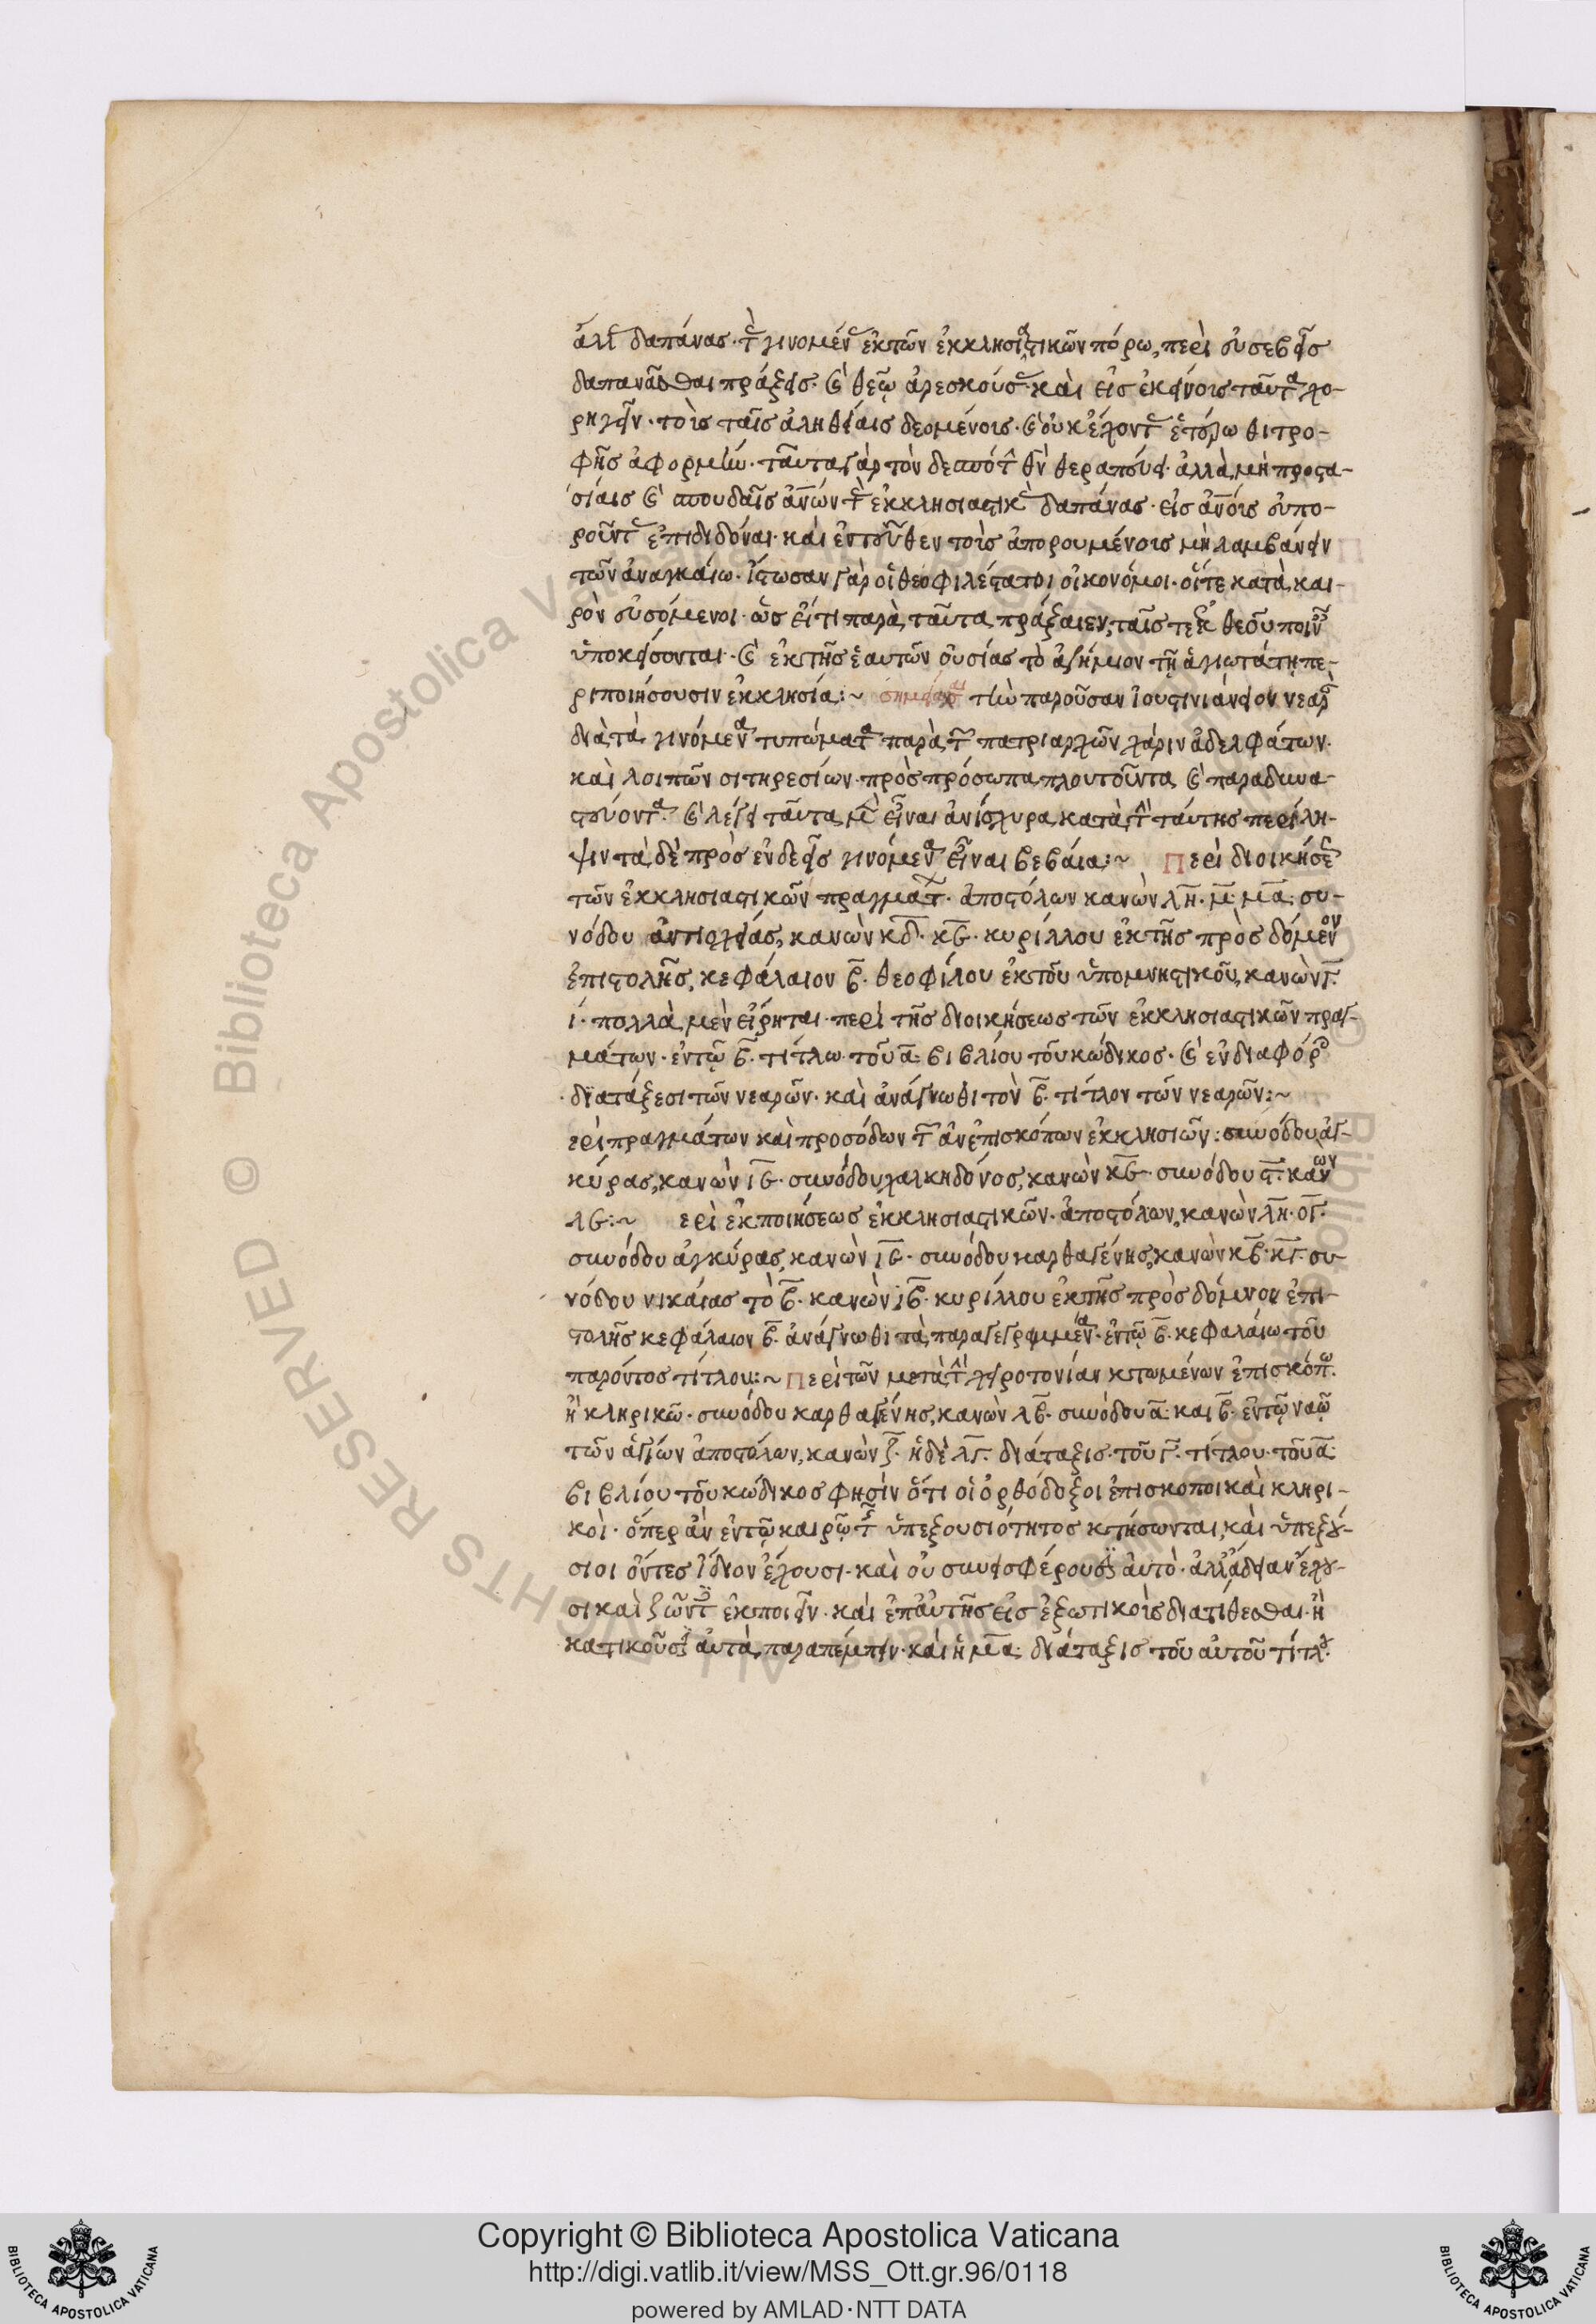 ἀλλὰ δαπάνας τὰς γινομένας ἐκ τῶν ἐκκλησιαστικῶν πόρων, περὶ εὐσεβεῖς
δαπανᾶσθαι πράξεις· καὶ θεῷ ἀρεσκούσας· καὶ εἰς ἐκείνοις ταῦτα χο-
ρηγεῖν· τοῖς ταῖς ἀληθείαις δεομένοις· καὶ οὐκ ἔχοντας ἑτέρωθι τρο-
φῆς ἀφορμήν· ταῦτα γὰρ τὸν δεσπότην θν̄ θεραπεύει· ἀλλὰ μὴ προστα-
σίαις καὶ σπουδαῖς ἀνων τὰς ἐκκλησιαστικὰς δαπάνας· εἰς ἀνοις εὐπο-
ροῦντας ἐπιδιδόναι· καὶ ἐντεῦθεν τοῖς ἀπορουμένοις μὴ λαμβάνειν
τῶν ἀναγκαίων· ἴστωσαν γὰρ οἱ θεοφιλέστατοι οἰκονόμοι· οἵ τε κατὰ και-
ρὸν ἐσόμενοι· ὡς εἴ τι παρὰ ταῦτα πράξαιεν, ταῖς τε ἐκ θεοῦ ποιναῖς
ὑποκείσονται· καὶ ἐκ τῆς ἑαυτῶν οὐσίας τὸ ἀζήμιον τῇ ἁγιωτάτῃ πε-
ριποιήσουσιν ἐκκλησία:~ τὴν παροῦσαν ἰουστινιάνειον νεαρὰν
διὰ τὰ γινόμενα τυπώματα παρὰ τῶν πατριαρχῶν χάριν ἀδελφάτων·
καὶ λοιπῶν σιτηρεσίων πρὸς πρόσωπα πλουτοῦντα καὶ παραδυνα-
στεύοντα· καὶ λέγε ταῦτα μὲν εἶναι ἀνίσχυρα κατὰ τὴν ταύτης περίλη-
ψιν τὰ δὲ πρὸς ἐνδεεῖς γινόμενα εἶναι βεβαία:~ Περὶ διοικήσεως
τῶν ἐκκλησιαστικῶν πραγμάτων· ἀποστόλων κανὼν λη· μ· μα· συ-
νόδου ἀντιοχείας, κανὼν κδ· κε· κυρίλλου ἐκ τῆς πρὸς δόμνον
ἐπιστολῆς, κεφάλαιον β· θεοφίλου ἐκ τοῦ ὑπομνηστικοῦ, κανὼν γ·
ι· πολλὰ μὲν εἴρηται περὶ τῆς διοικήσεως τῶν ἐκκλησιαστικῶν πραγ-
μάτων· ἐν τῷ β· τίτλω τοῦ α· βιβλίου τοῦ κώδικος· καὶ ἐν διαφόροις
διατάξεσι τῶν νεαρῶν· καὶ ἀνάγνωθι τὸν β· τίτλον τῶν νεαρῶν:~
ερὶ πραγμάτων καὶ προσόδων τῶν ἀνεπισκόπων ἐκκλησιῶν: συνόδου ἀγ-
κύρας, κανὼν ιε· συνόδου χαλκηδόνος, κανὼν κε· συνόδου ς· κανὼν
λε:~ ερὶ ἐκποιήσεως ἐκκλησιαστικῶν· ἀποστόλων, κανὼν λη· ογ·
συνόδου ἀγκύρας, κανὼν ιε· συνόδου καρθαγένης, κανὼν κβ· κγ· συ-
νόδου νικαίας τὸ β· κανὼν ιβ· κυρίλλου ἐκ τῆς πρὸς δόμνον ἐπι-
στολῆς κεφάλαιον β· ἀνάγνωθι τὰ παραγεγραμμένα ἐν τῷ β· κεφαλαίω τοῦ
παρόντος τίτλου:~ Περὶ τῶν μετὰ τὴν χειροτονίαν κτωμένων ἐπισκόπων
ἢ κληρικῶν· συνόδου καρθαγένης, κανὼν λβ· συνόδου α· καὶ β· ἐν τῷ ναῷ
τῶν ἁγίων ἀποστόλων, κανὼν ζ· ἡ δὲ λγ· διάταξις τοῦ γ· τίτλου τοῦ α·
βιβλίου τοῦ κώδικος φησὶν ὅτι οἱ ὀρθόδοξοι ἐπίσκοποι καὶ κληρι-
κοὶ· ὅπερ ἂν ἐν τῷ καιρῷ τῆς ὑπεξουσιότητος κτήσωνται, καὶ ὑπεξού-
σιοι ὄντες ἴδιον ἔχουσι· καὶ οὐ συνεισφέρουσιν αὐτὸ· ἀλλ' ἄδειαν ἔχου-
σι καὶ ζῶντες ἐκποιεῖν· καὶ ἐπ' αὐτῆς εἰς ἐξωτικοῖς διατίθεσθαι· ἢ
κατιοῦσιν αὐτὰ παραπέμπειν· καὶ ἡ μα· διάταξις τοῦ αὐτοῦ τίτλου
Copyright © Biblioteca Apostolica Vaticana
http://digi.vatlib.it/view/MSS_Ott.gr.96/0118
powered by AMLAD·NTT DATA